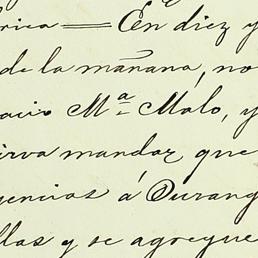 rica = En diez y
de la mañana, no
acio Mª Malo, y
irva mandar que
gencias á Durang
llas y se agregue